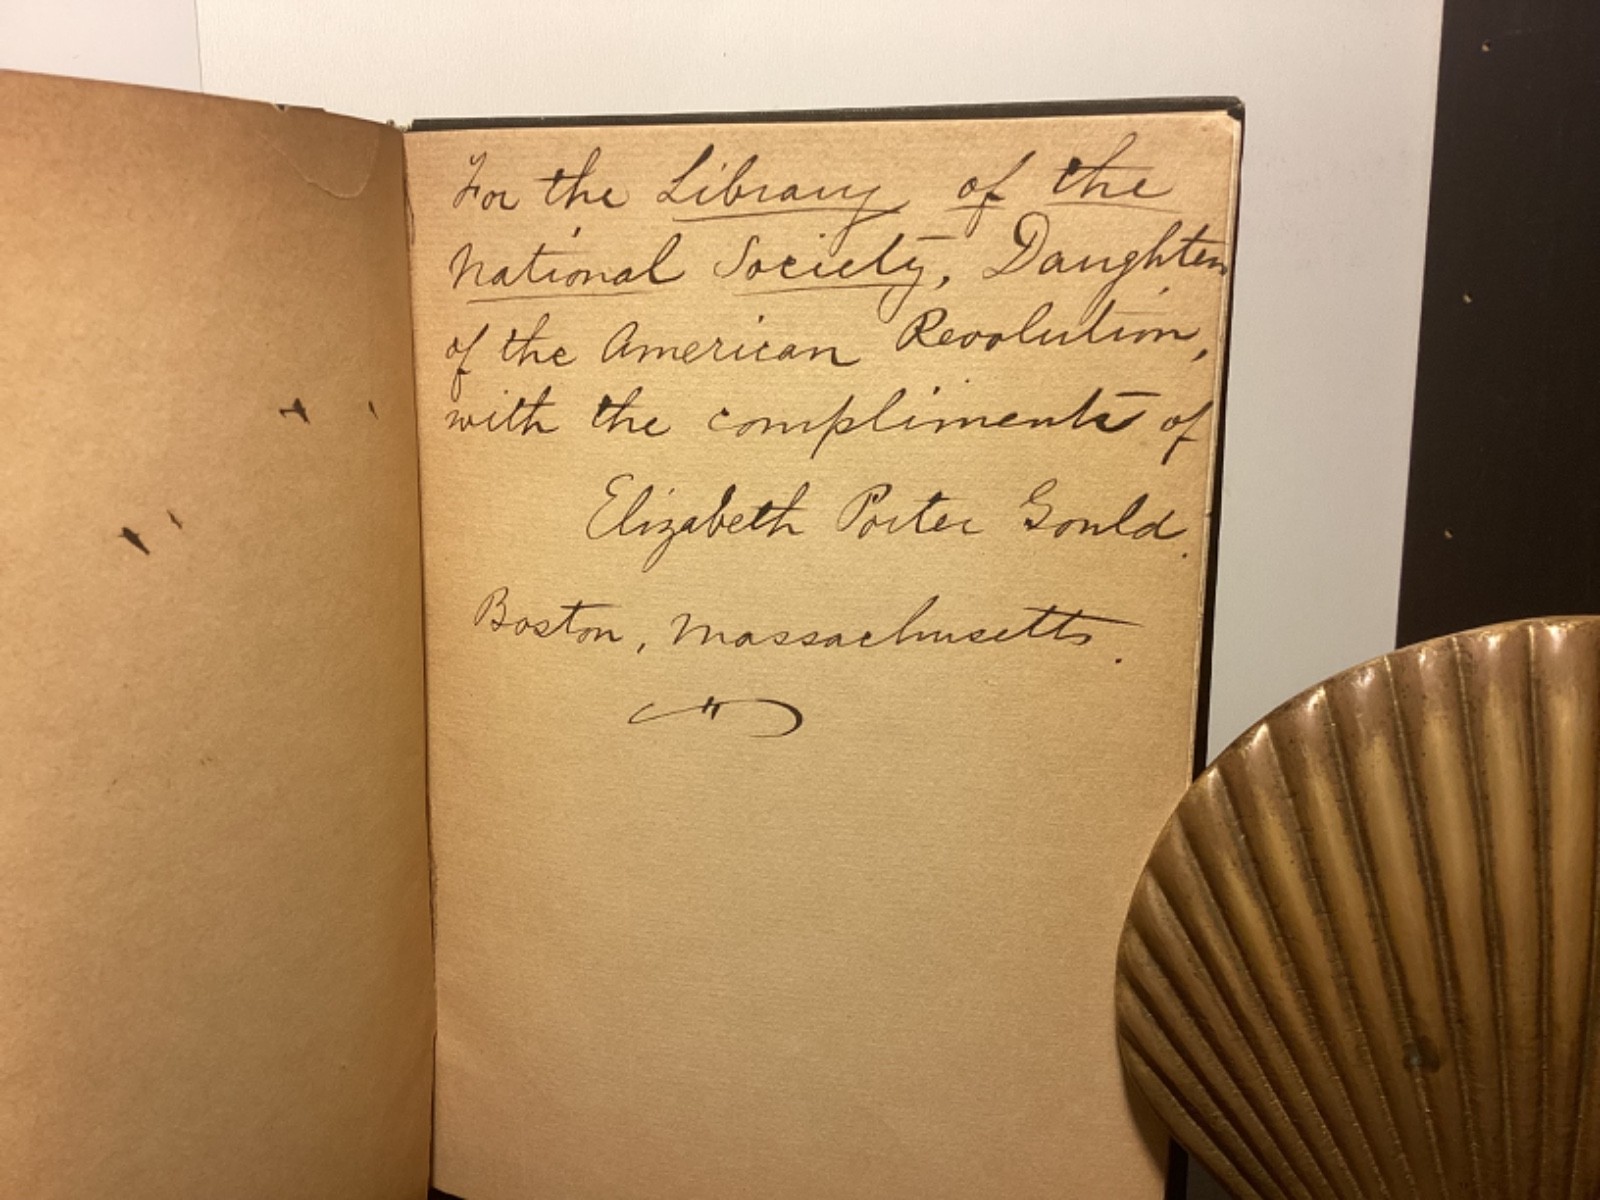 For the Library of the
National Society, Daughters
of the American Revolution,
with the compliments of
Elizabeth Porter Gould.
Boston, Massachusetts.